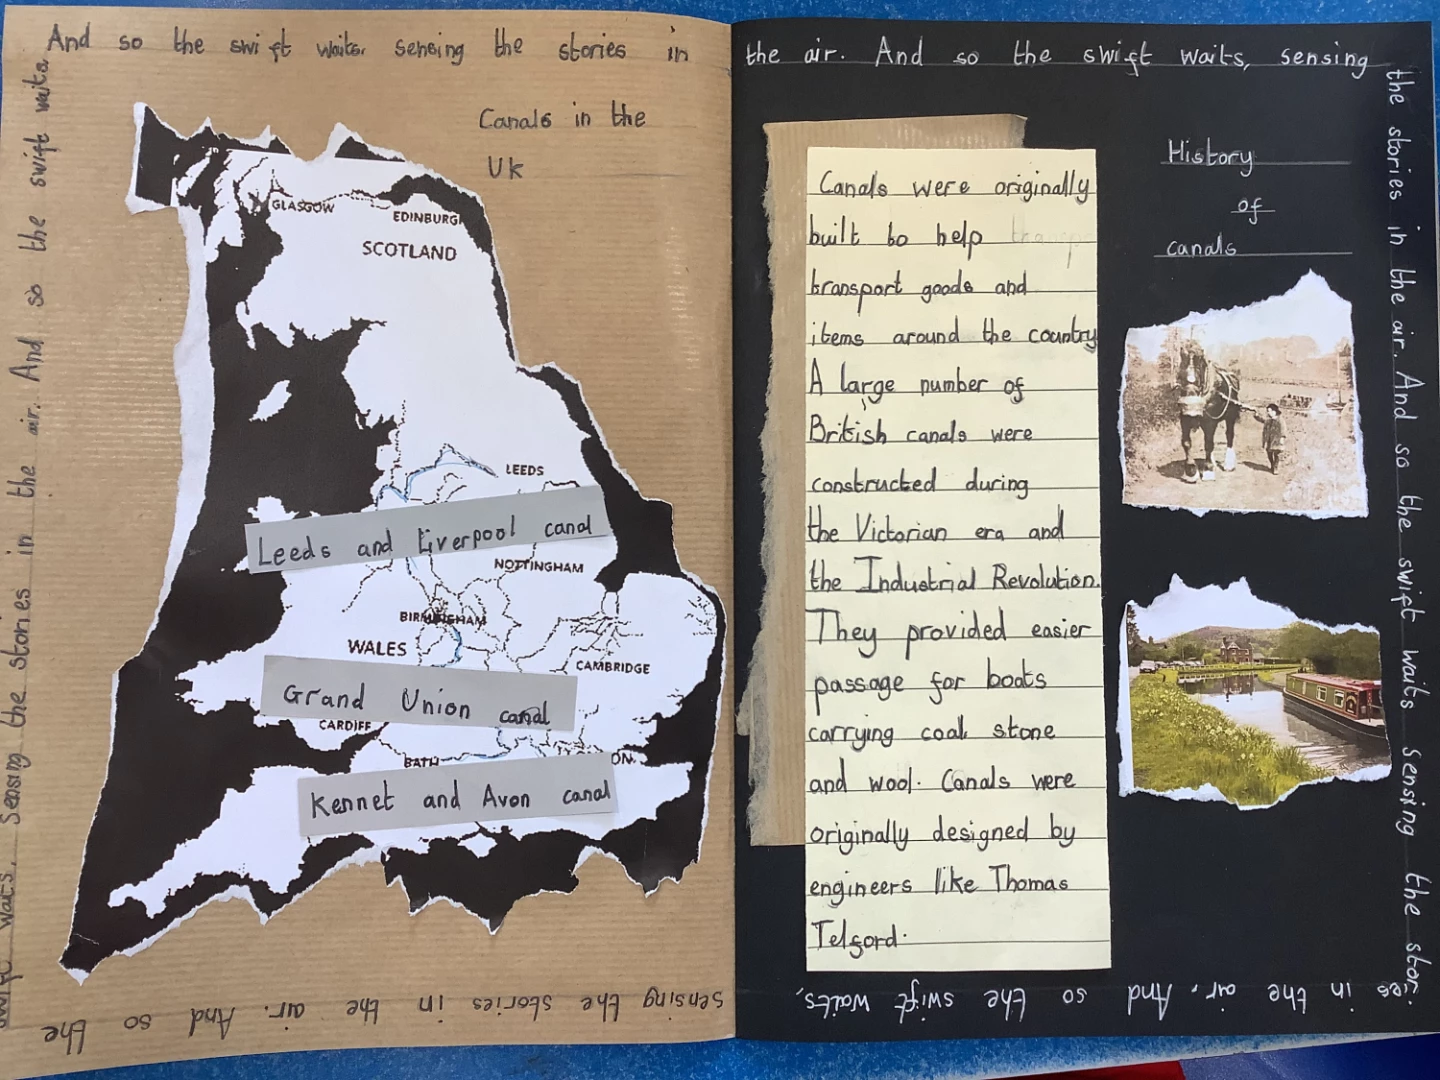 And so the swift waits. sensing the stories in
the air. And so the swift waits, sensing
the stories in the air. And so the swift waits sensing the stor
ies in the air. And so the swift waits,
sensing the stories in the air. And so the
swift waits. Sensing the stories in the air. And so the swift waits
Canals in the
UK
GLASGOW
EDINBURG
SCOTLAND
LEEDS
Leeds and Liverpool canal
NOTTINGHAM
BIRMINGHAM
WALES
CAMBRIDGE
Grand Union canal
CARDIFF
BATH
ON
Kennet and Avon canal
Canals were originally
built to help
transport goods and
items around the country
A large number of
British canals were
constructed during
the Victorian era and
the Industrial Revolution.
They provided easier
passage for boats
carrying coal stone
and wool. Canals were
originally designed by
engineers like Thomas
Telford.
History
of
canals